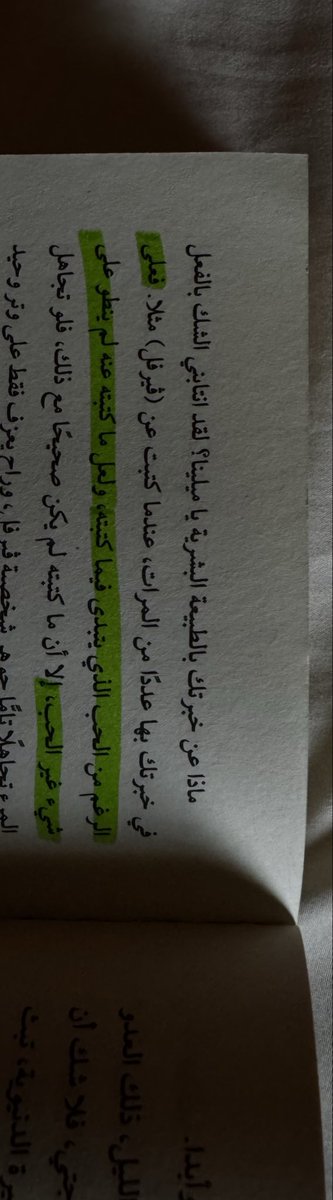 ماذا عن خبرتك بالطبيعة البشرية يا ميلينا؟ لقد انتابني الشك بالفعل
في خبرتك بها عددًا من المرات، عندما كتبت عن (فيرفل) مثلا. فعلى
الرغم من الحب الذي يتبدى فيما كتبته، ولعل ما كتبته عنه لم ينطو على
شيء غير الحب، إلا أن ما كتبته لم يكن صحيحًا مع ذلك، فلو تجاهل
المرء تجاهلًا تامًا جوهر شخصية فيرفل، وراح يعزف فقط على وتر وحيد
أبدا.
الليل، ذلك العدو
فلا شك أن